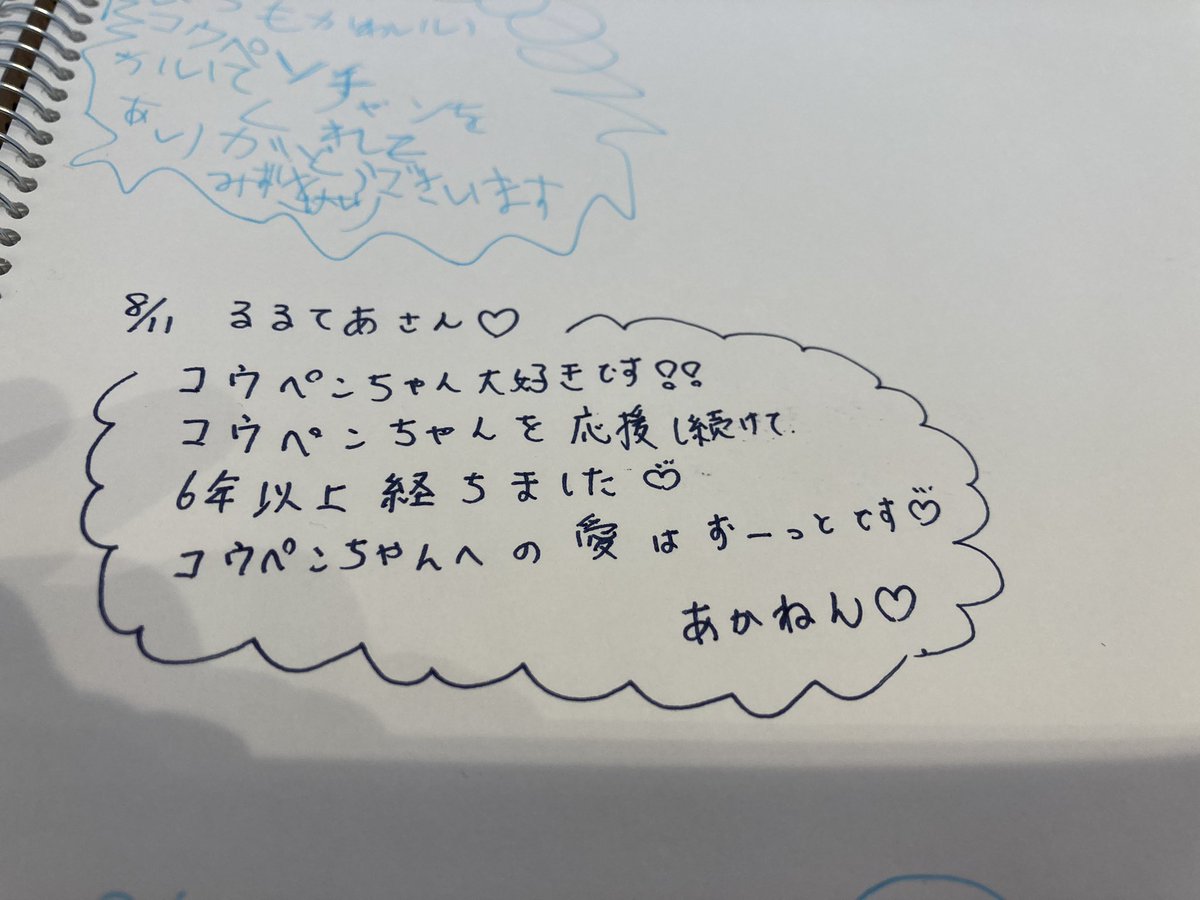 もかわいい
コウペンチャンを
かいてくれて
ありがとうございます
みずき
8/11 るるてあさん♡
コウペンちゃん大好きです!!
コウペンちゃんを応援し続けて
6年以上経ちました♡
コウペンちゃんへの愛はずーっとです♡
あかねん♡